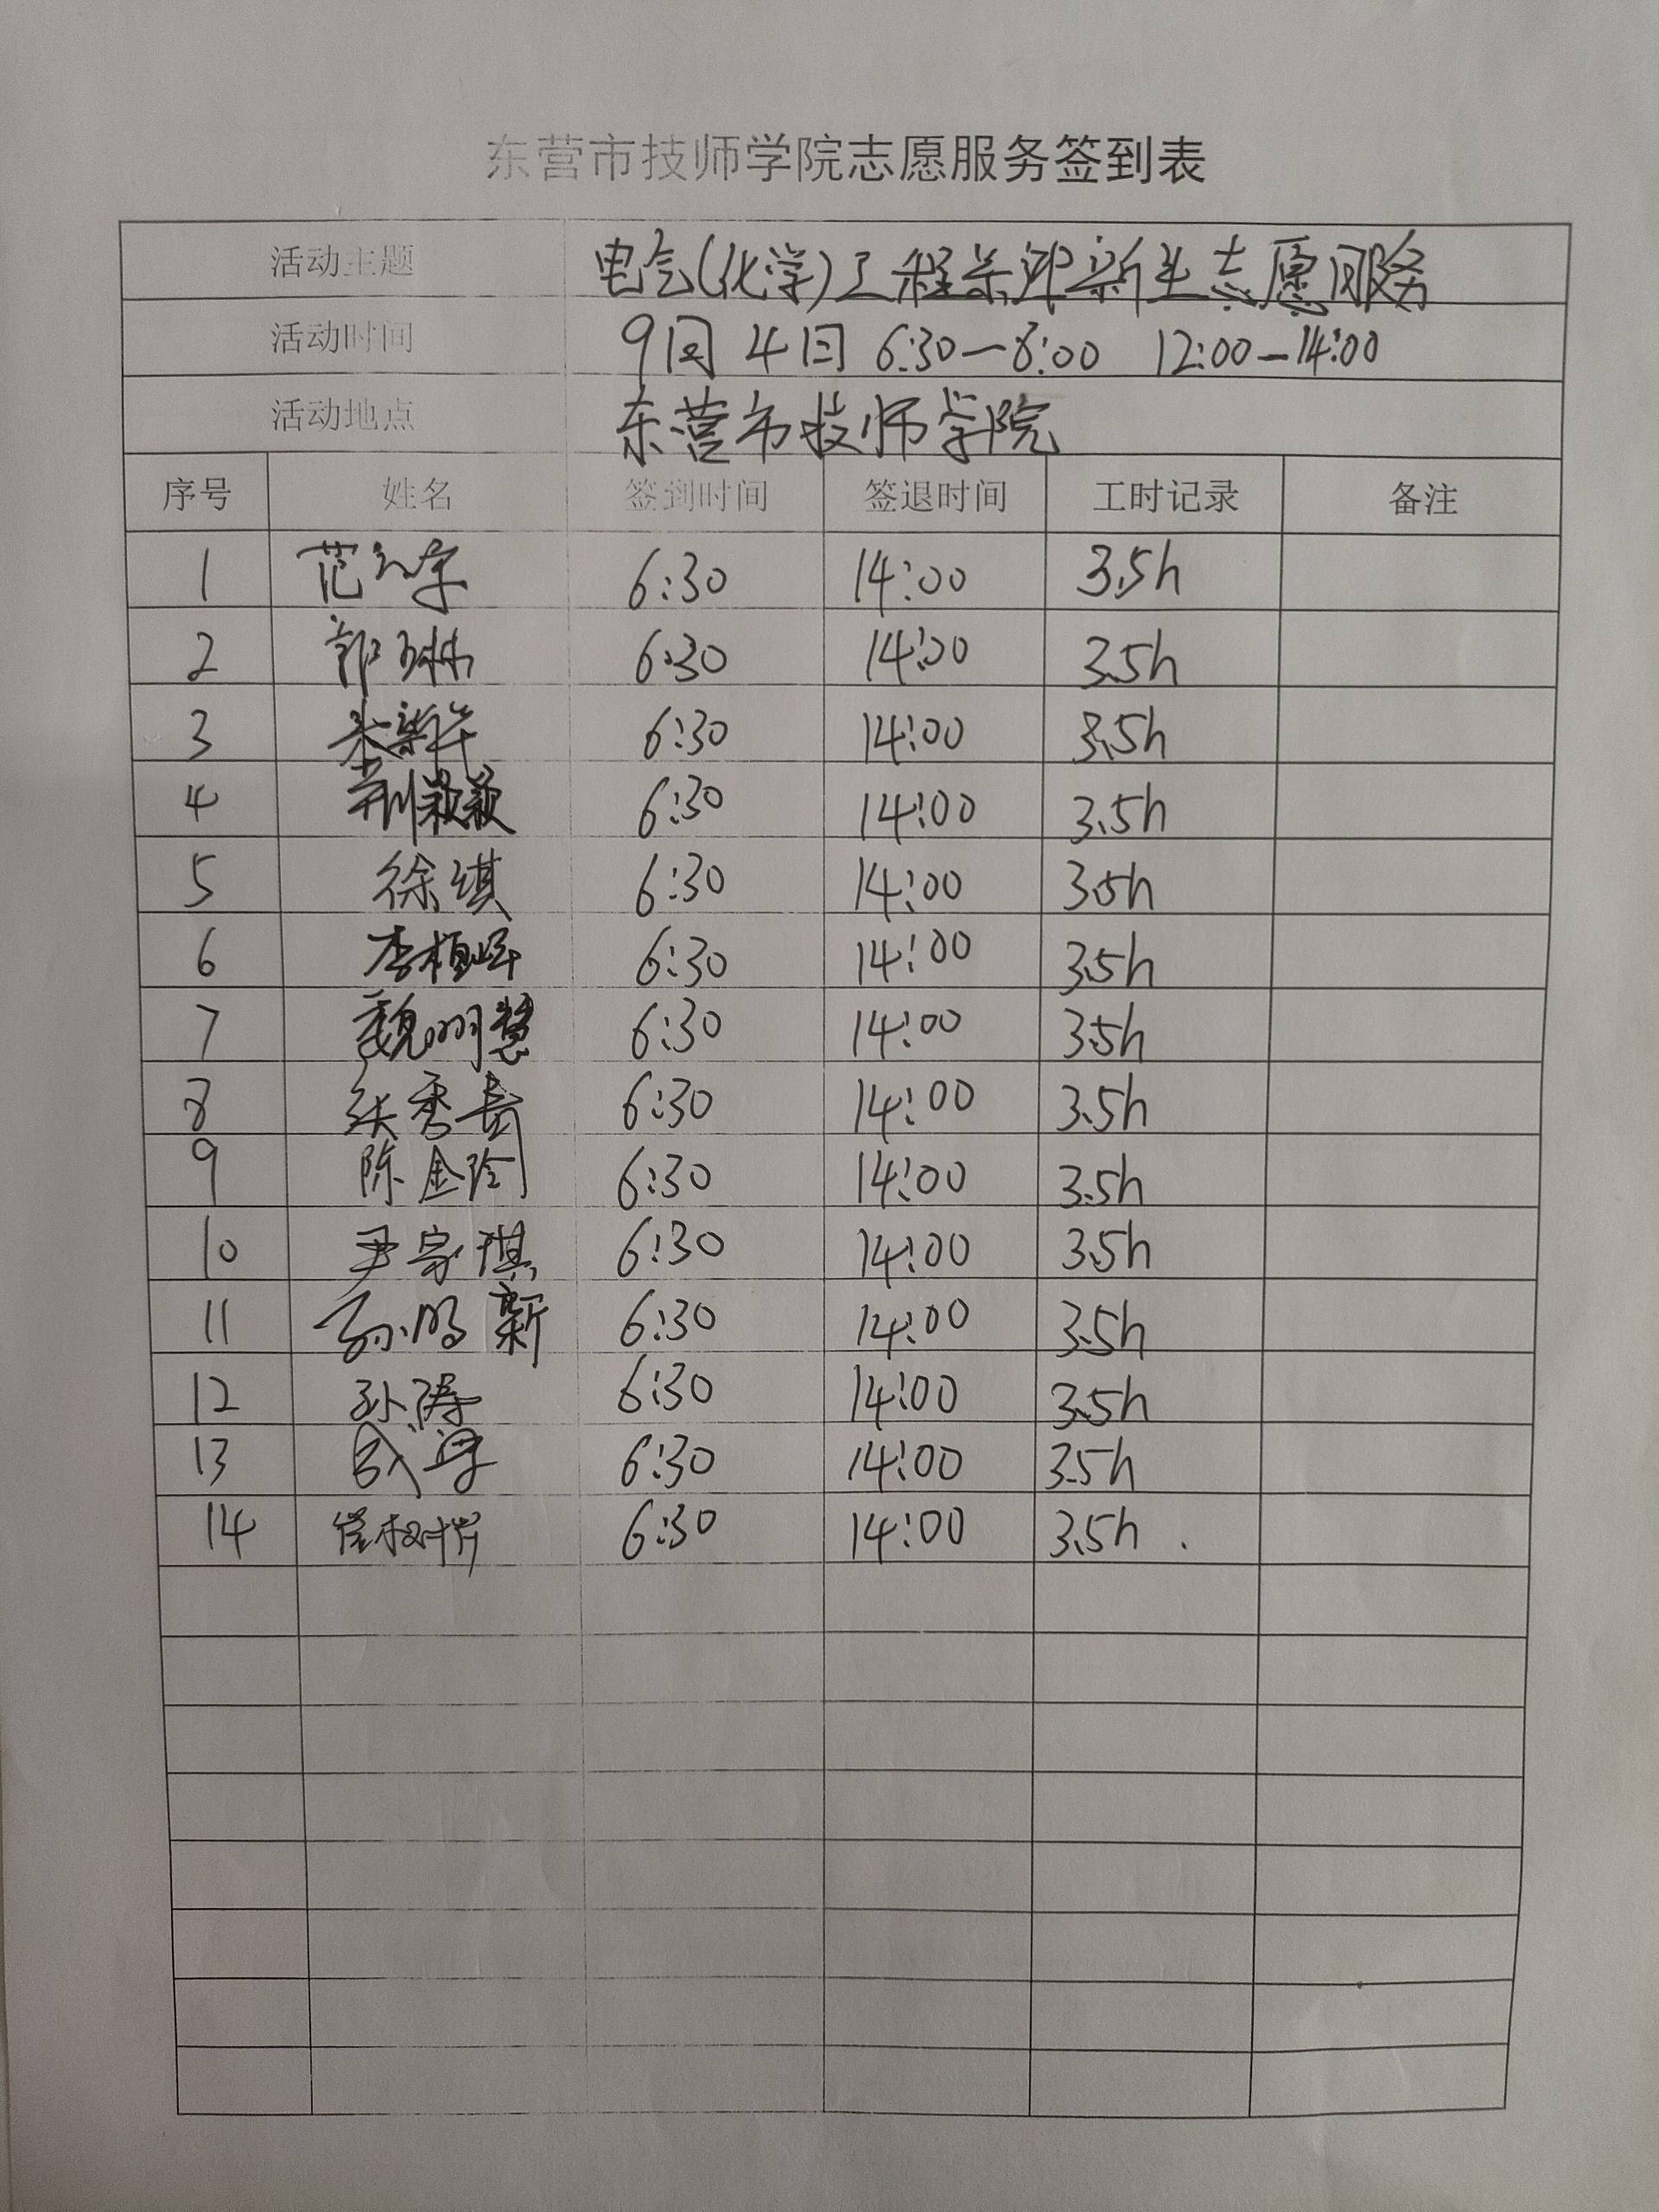 东营市技师学院志愿服务签到表
活动主题 电气(化学)工程系迎新生志愿服务
活动时间 9月4日 6:30—8:00 12:00—14:00
活动地点 东营市技师学院
序号 姓名 签到时间 签退时间 工时记录 备注
1 范 6:30 14:00 3.5h
2 郭 6:30 14:00 3.5h
3 6:30 14:00 3.5h
4 荆颖颖 6:30 14:00 3.5h
5 徐琪 6:30 14:00 3.5h
6 李桓晖 6:30 14:00 3.5h
7 魏明慧 6:30 14:00 3.5h
8 张秀 6:30 14:00 3.5h
9 陈金玲 6:30 14:00 3.5h
10 尹家琪 6:30 14:00 3.5h
11 孙鸣新 6:30 14:00 3.5h
12 孙涛 6:30 14:00 3.5h
13 6:30 14:00 3.5h
14 崔 6:30 14:00 3.5h